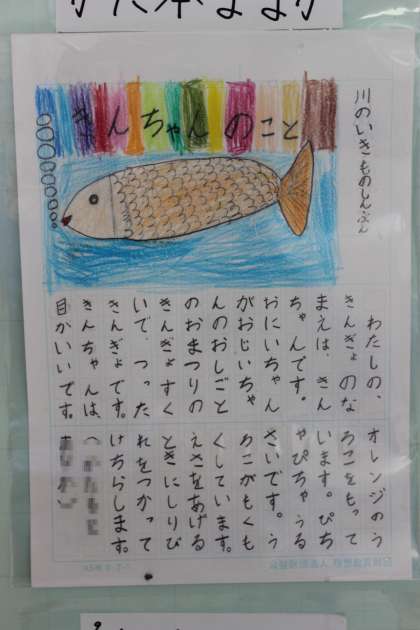 川のいきものしんぶん
きんちゃんのこと
わたしの、
きんぎょのな
まえは、きん
ちゃんです。
おにいちゃん
がおじいちゃ
んのおしごと
のおまつりの
きんぎょすく
いで、つった
きんぎょです。
きんちゃんは、
目がいいです。
オレンジのう
ろこをもって
います。ぴち
ゃぴちゃうる
さいです。う
ろこがもくも
くしています。
えさをあげる
ときにしりび
れをつかって
けちらします。